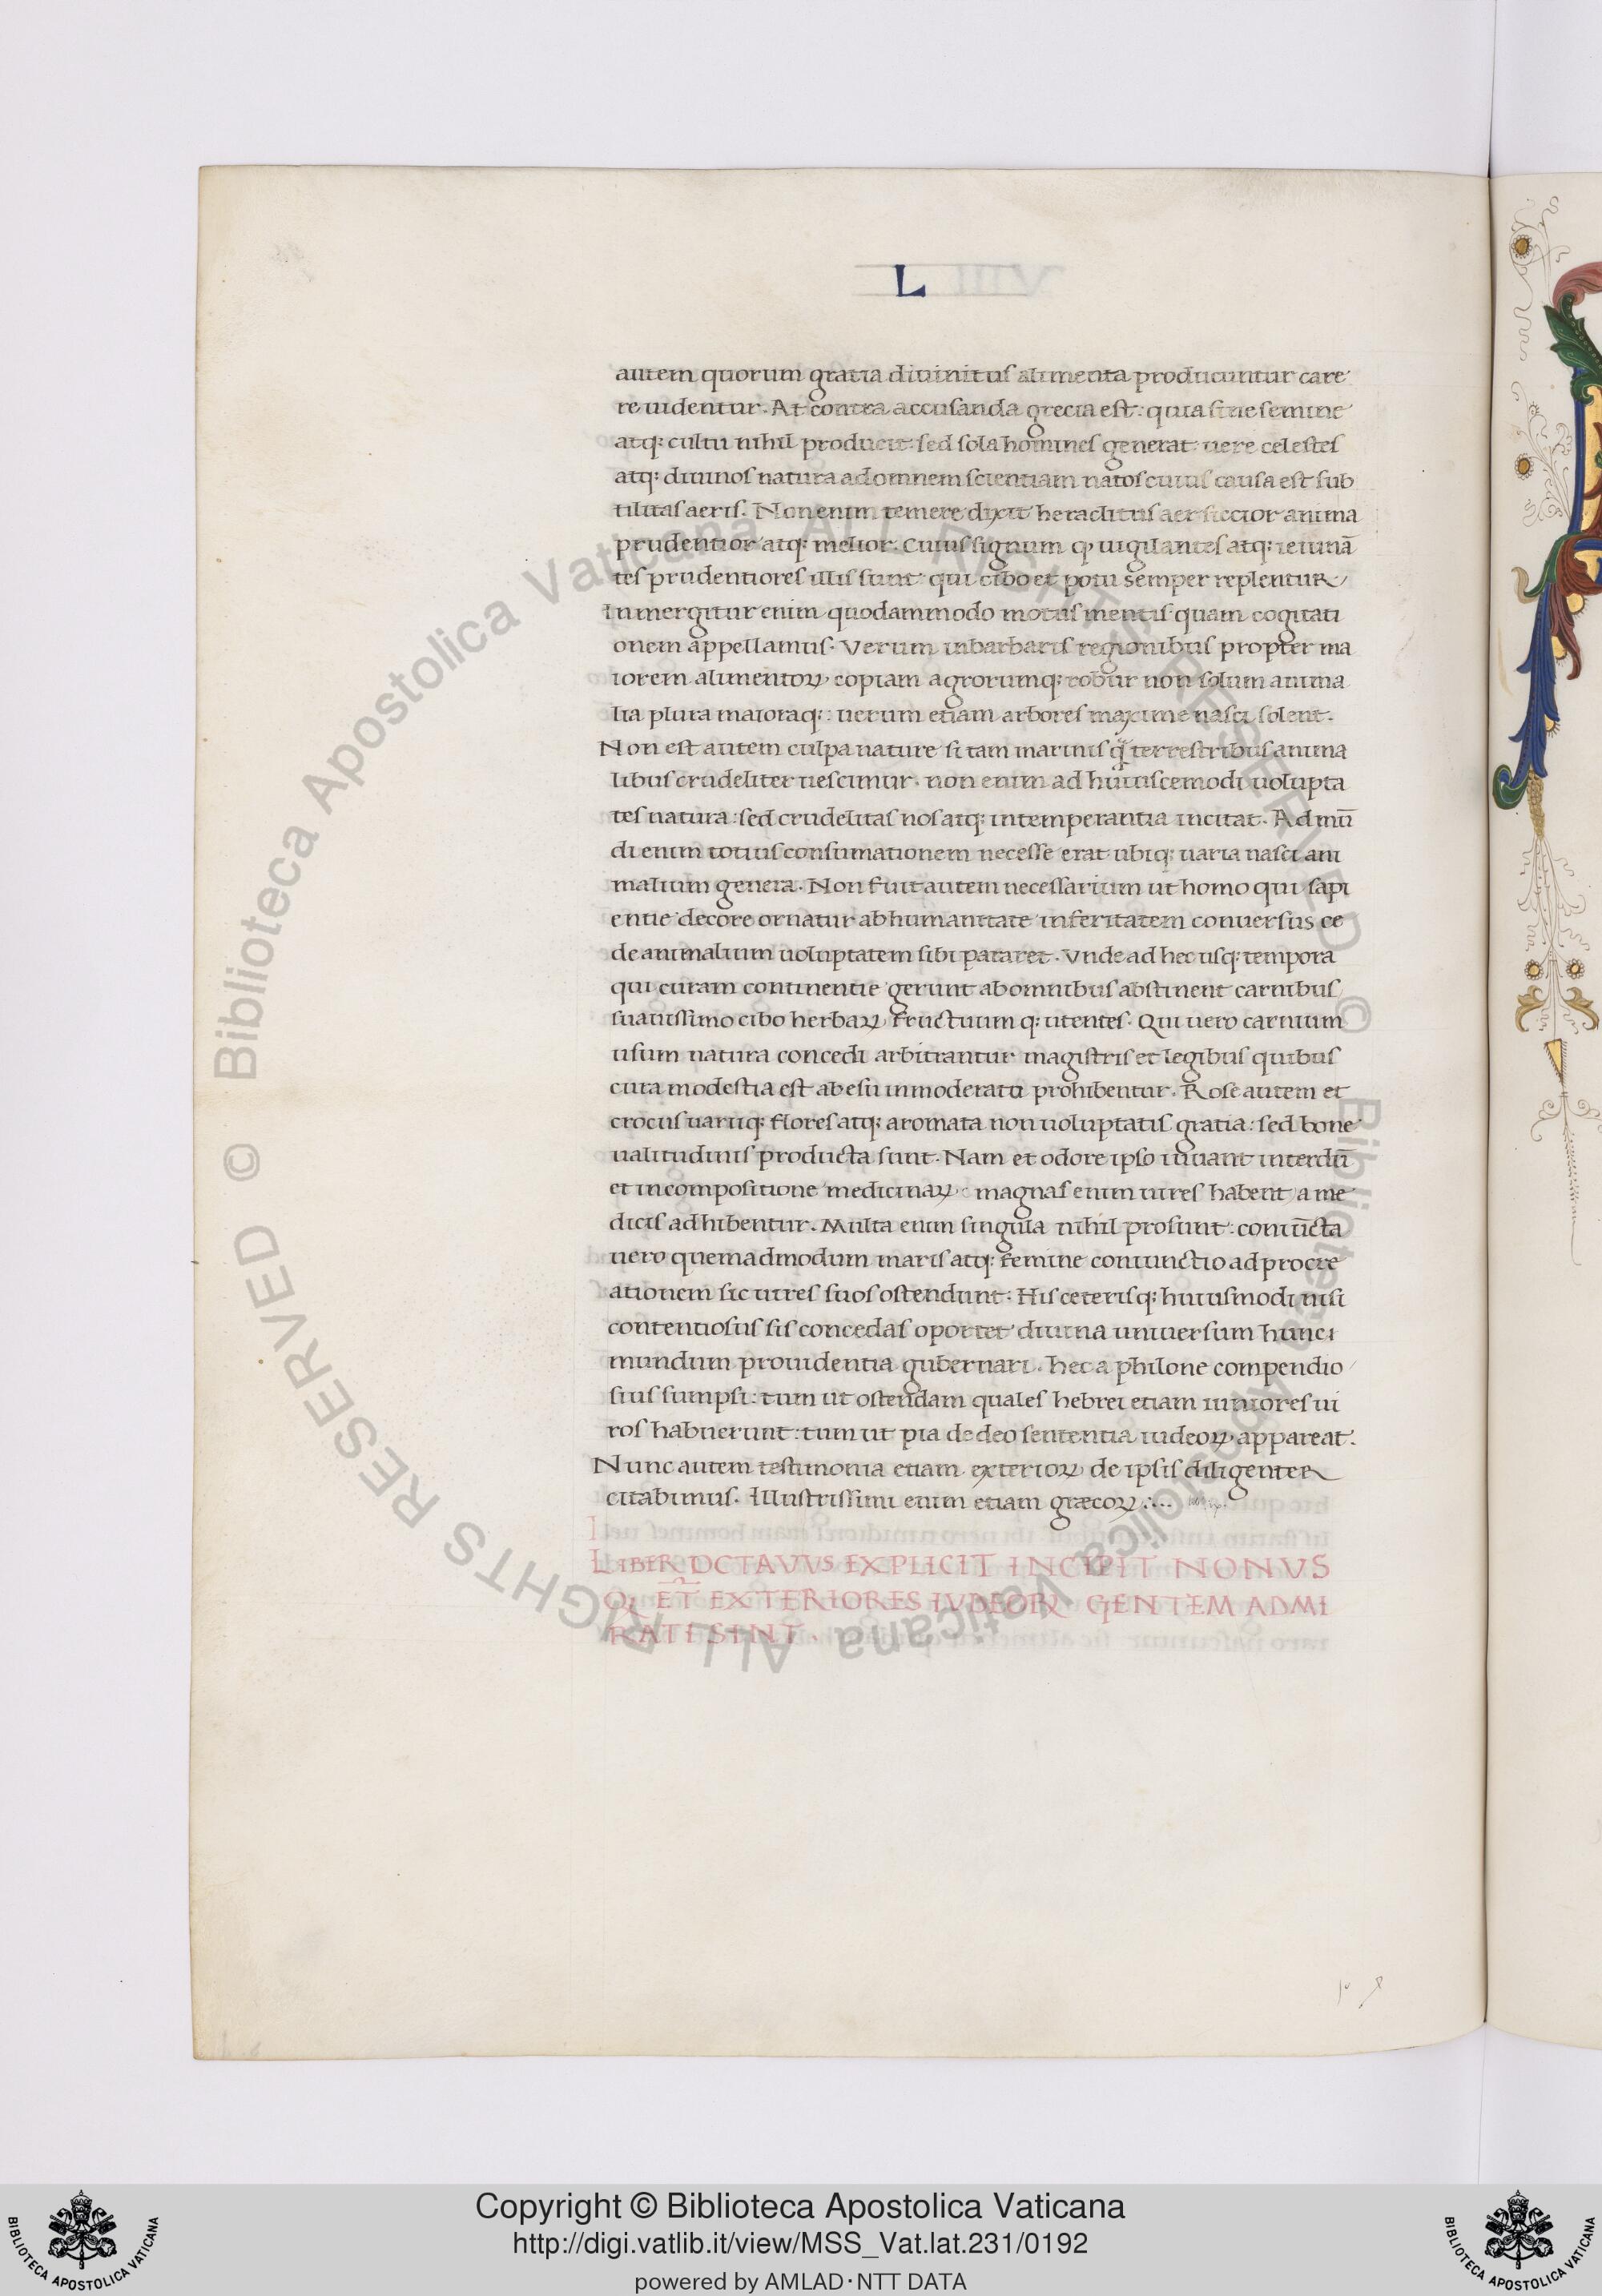 L
autem quorum gratia diuinitus alimenta producuntur care
re uidentur. At contra accusanda grecia est: quia sine semine
atq; cultu nihil producit: sed sola homines generat uere celestes
atq; diuinos natura ad omnem scientiam natos cuius causa est sub
tilitas aeris. Non enim temere dixit heraclitus aer siccior anima
prudentior atq; melior. Cuius signum ꝙ uigilantes atq; ieiunā
tes prudentiores illis sunt qui cibo et potu semper replentur
Inmergitur enim quodammodo motus mentis quam cogitati
onem appellamus. Verum in barbaris regionibus propter ma
iorem alimentoꝝ copiam agrorumq; robur non solum anima
lia plura maioraq;: uerum etiam arbores maxime nasci solent.
Non est autem culpa nature si tam marinis q̃ terrestribus anima
libus crudeliter uescimur. non enim ad huiuscemodi uolupta
tes natura: sed crudelitas nos atq; intemperantia incitat. Ad mū
di enim totius consumationem necesse erat ubiq; uaria nasci ani
malium genera. Non fuit autem necessarium ut homo qui sapi
entie decore ornatur ab humanitate in feritatem conuersus ce
de animalium uoluptatem sibi pararet. Vnde ad hec usq; tempora
qui curam continentie gerunt ab omnibus abstinent carnibus
suauissimo cibo herbaꝝ fructuum q; utentes. Qui uero carnium
usum natura concedi arbitrantur magistris et legibus quibus
cura modestia est ab esu inmoderato prohibentur. Rose autem et
crocus uariiq; flores atq; aromata non uoluptatis gratia: sed bone
ualitudinis producta sunt. Nam et odore ipso iuuant interdū
et in compositione medicinaꝝ: magnas enim uires habent a me
dicis adhibentur. Multa enim singula nihil prosunt: coniūcta
uero quemadmodum maris atq; femine coniunctio ad procre
ationem sic uires suos ostendunt: His ceterisq; huiusmodi nisi
contentiosus sis concedas oportet diuina uniuersum hunc
mundum prouidentia gubernari. hec a philone compendio
sius sumpsi: tum ut ostendam quales hebrei etiam iuniores ui
ros habuerunt: tum ut pia de deo sententia iudeoꝝ appareat.
Nunc autem testimonia etiam exterioꝝ de ipsis diligenter
citabimus. Illustrissimi enim etiam græcoꝝ :...
LIBER OCTAVVS EXPLICIT INCIPIT NONVS
Qꝫ ET EXTERIORES IVDEOꝜ GENTEM ADMI
RATI SINT.
© Biblioteca Apostolica Vaticana ALL RIGHTS RESERVED © Biblioteca Apostolica Vaticana ALL RIGHTS RESERVED
BIBLIOTECA APOSTOLICA VATICANA
Copyright © Biblioteca Apostolica Vaticana
http://digi.vatlib.it/view/MSS_Vat.lat.231/0192
powered by AMLAD·NTT DATA
BIBLIOTECA APOSTOLICA VATICANA